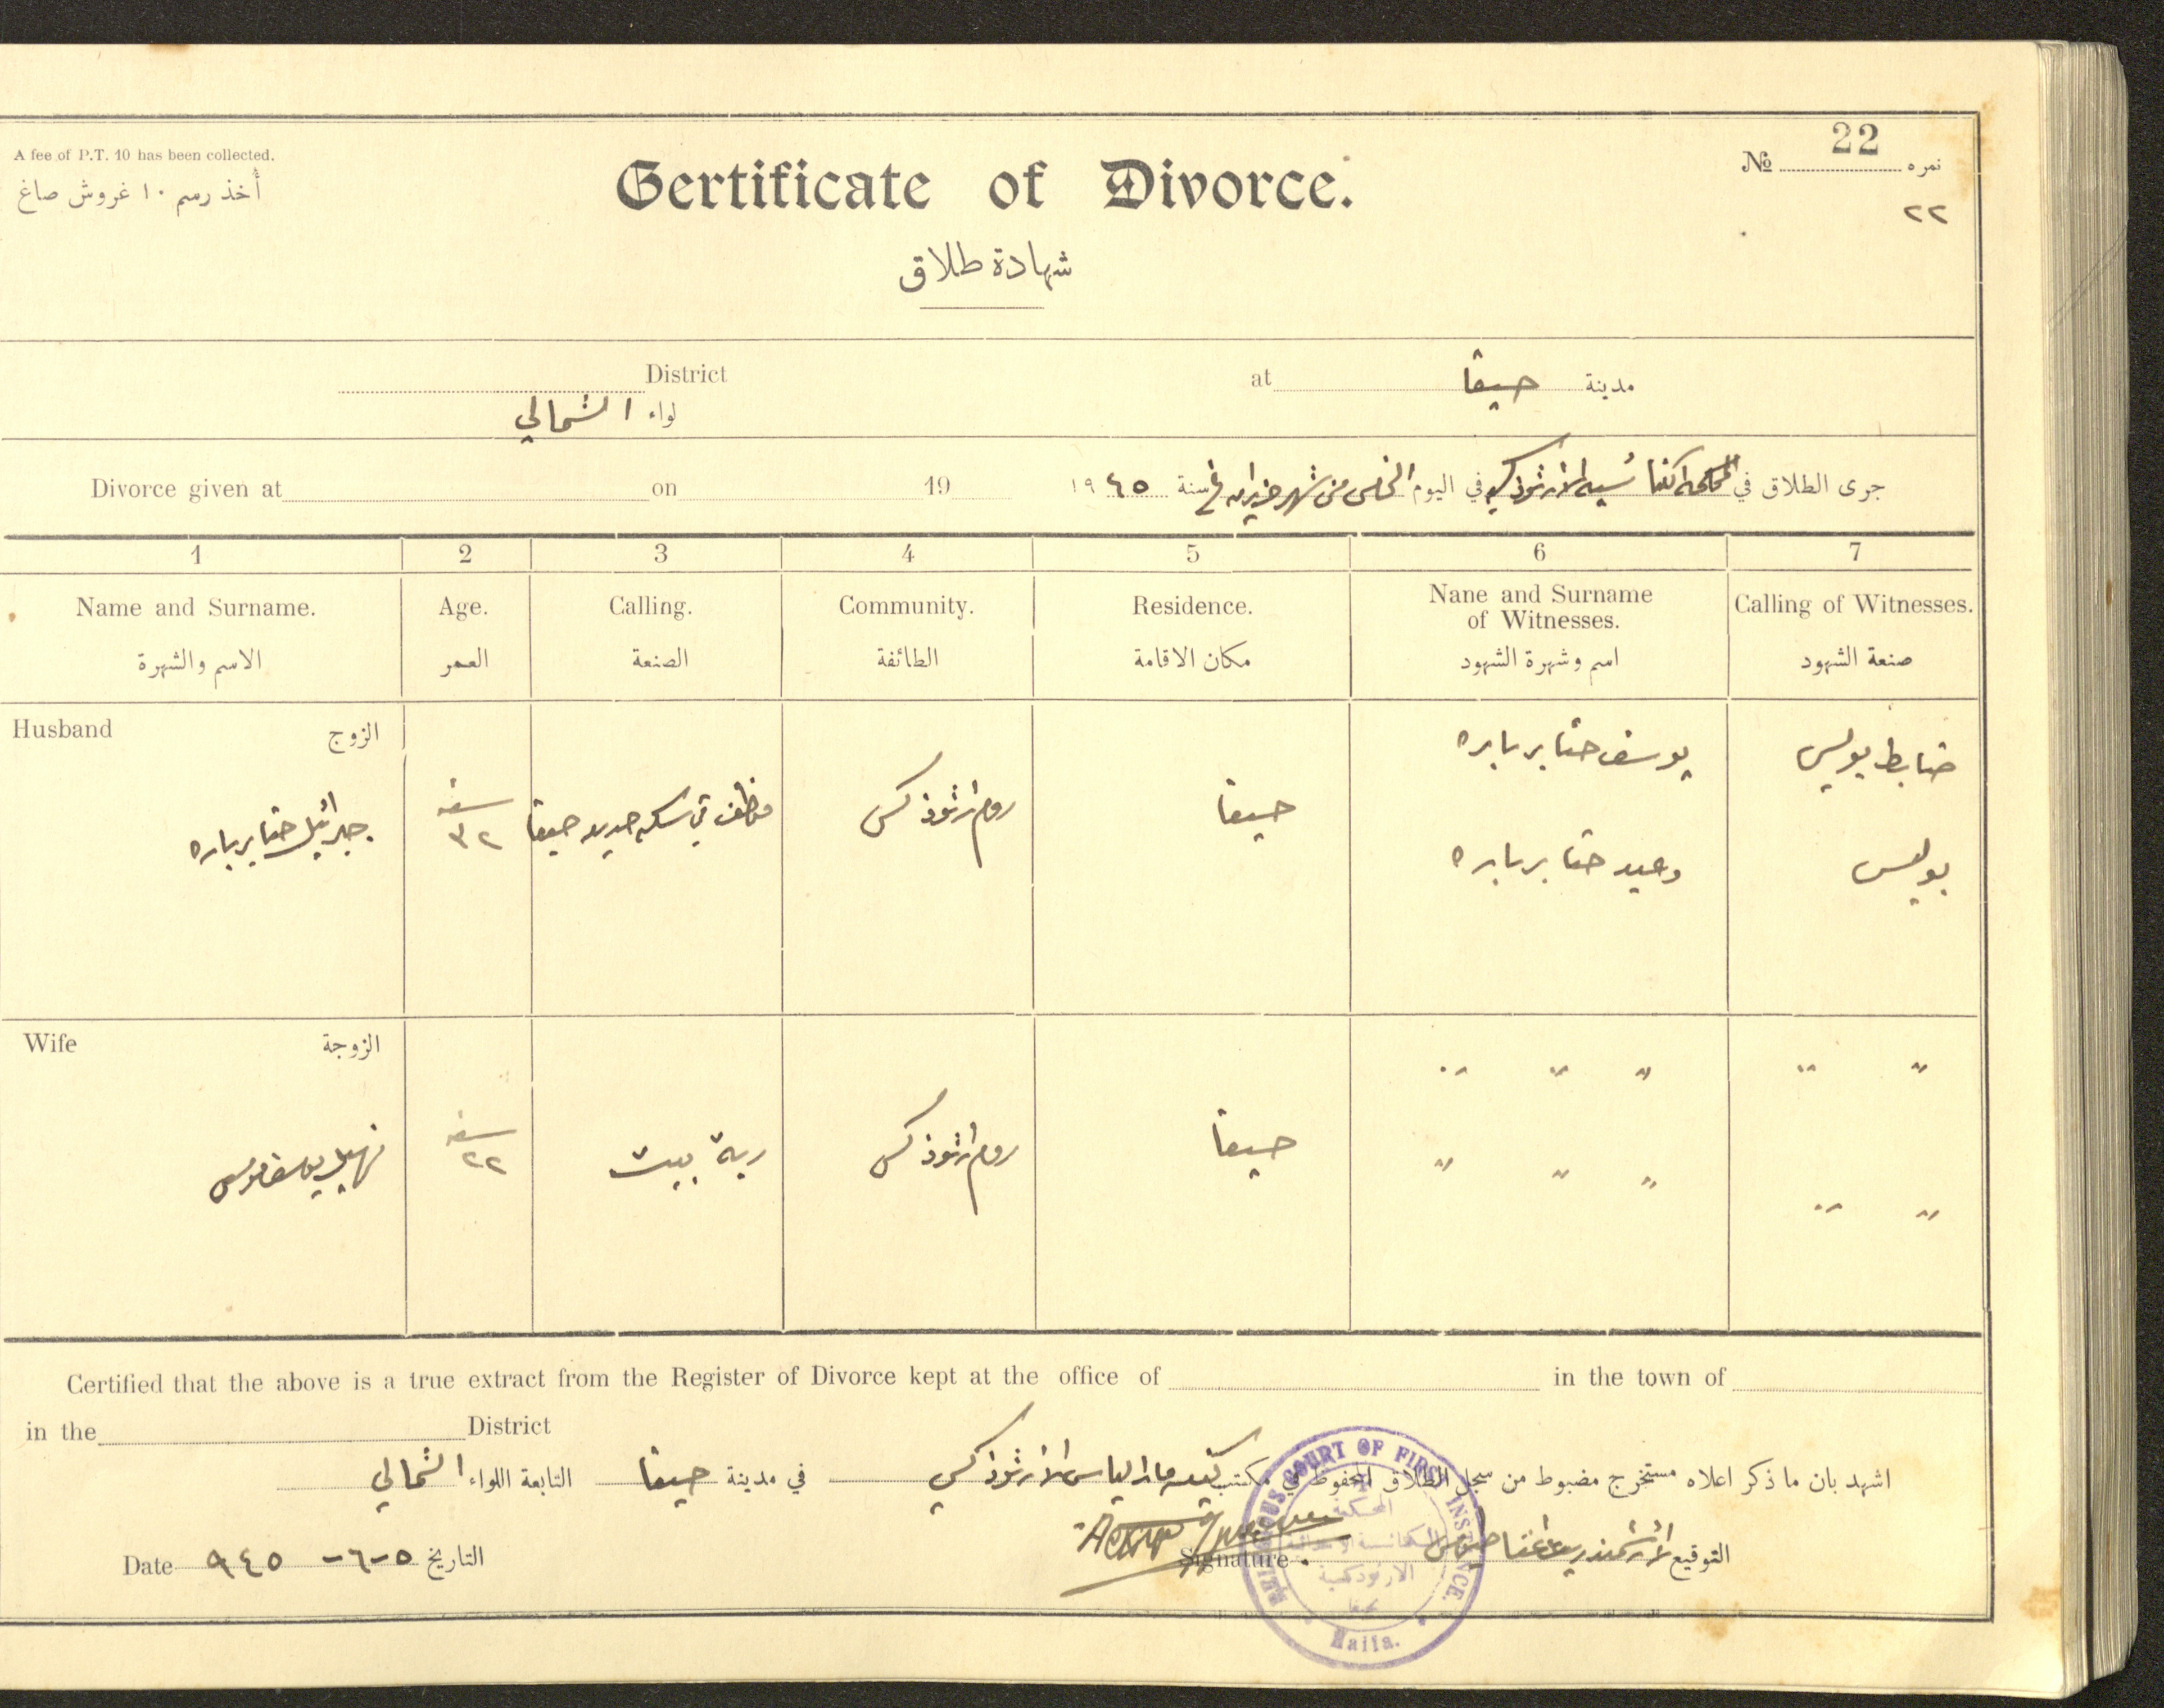 A fee of P.T. 10 has been collected.
أُخذ رسم ١٠ غروش صاغ
Certificate of Divorce.
شهادة طلاق
№ 22 نمره
٢٢
District
لواء الشمالي
at حيفا مدينة
Divorce given at on 19
جرى الطلاق في المحكمة الكنائسيه الارثوذكسيه في اليوم الخامس من شهر حزيران سنة ١٩٤٥
1 2 3 4 5 6 7
Name and Surname. Age. Calling. Community. Residence. Nane and Surname of Witnesses. Calling of Witnesses.
الاسم والشهرة العمر الصنعة الطائفة مكان الاقامة اسم وشهرة الشهود صنعة الشهود
Husband الزوج
جبرائيل حنا بربارة
سنة ٣٢
موظف في سكة حديد حيفا
روم ارثوذكس
حيفا
يوسف حنا برباره
ضابط بوليس
وديع حنا برباره
بوليس
Wife الزوجة
يوسف موسى
سنة ٢٢
ربة بيت
روم ارثوذكس
حيفا
〃 〃 〃 〃 〃
〃 〃 〃 〃 〃
Certified that the above is a true extract from the Register of Divorce kept at the office of in the town of
in the District
اشهد بان ما ذكر اعلاه مستخرج مضبوط من سجل الطلاق المحفوظ في مكتب كنيسة مار الياس الارثوذكسي في مدينة حيفا التابعة اللواء الشمالي
التوقيع الارشمندريت
Signature
Date ٥-٦-٩٤٥ التاريخ
RELIGIOUS COURT OF FIRST INSTANCE.
المحكمة
الارثوذكسية
Haifa.